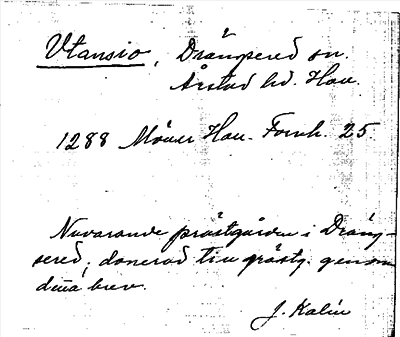 Utansio, Drängsered sn.
Årstad hd. Hall.
1288 Möller Hall. Fornh. 25.
Nuvarande prästgården i Dräng-
sered; donerad till prästg. genom
detta brev.
J. Kalén